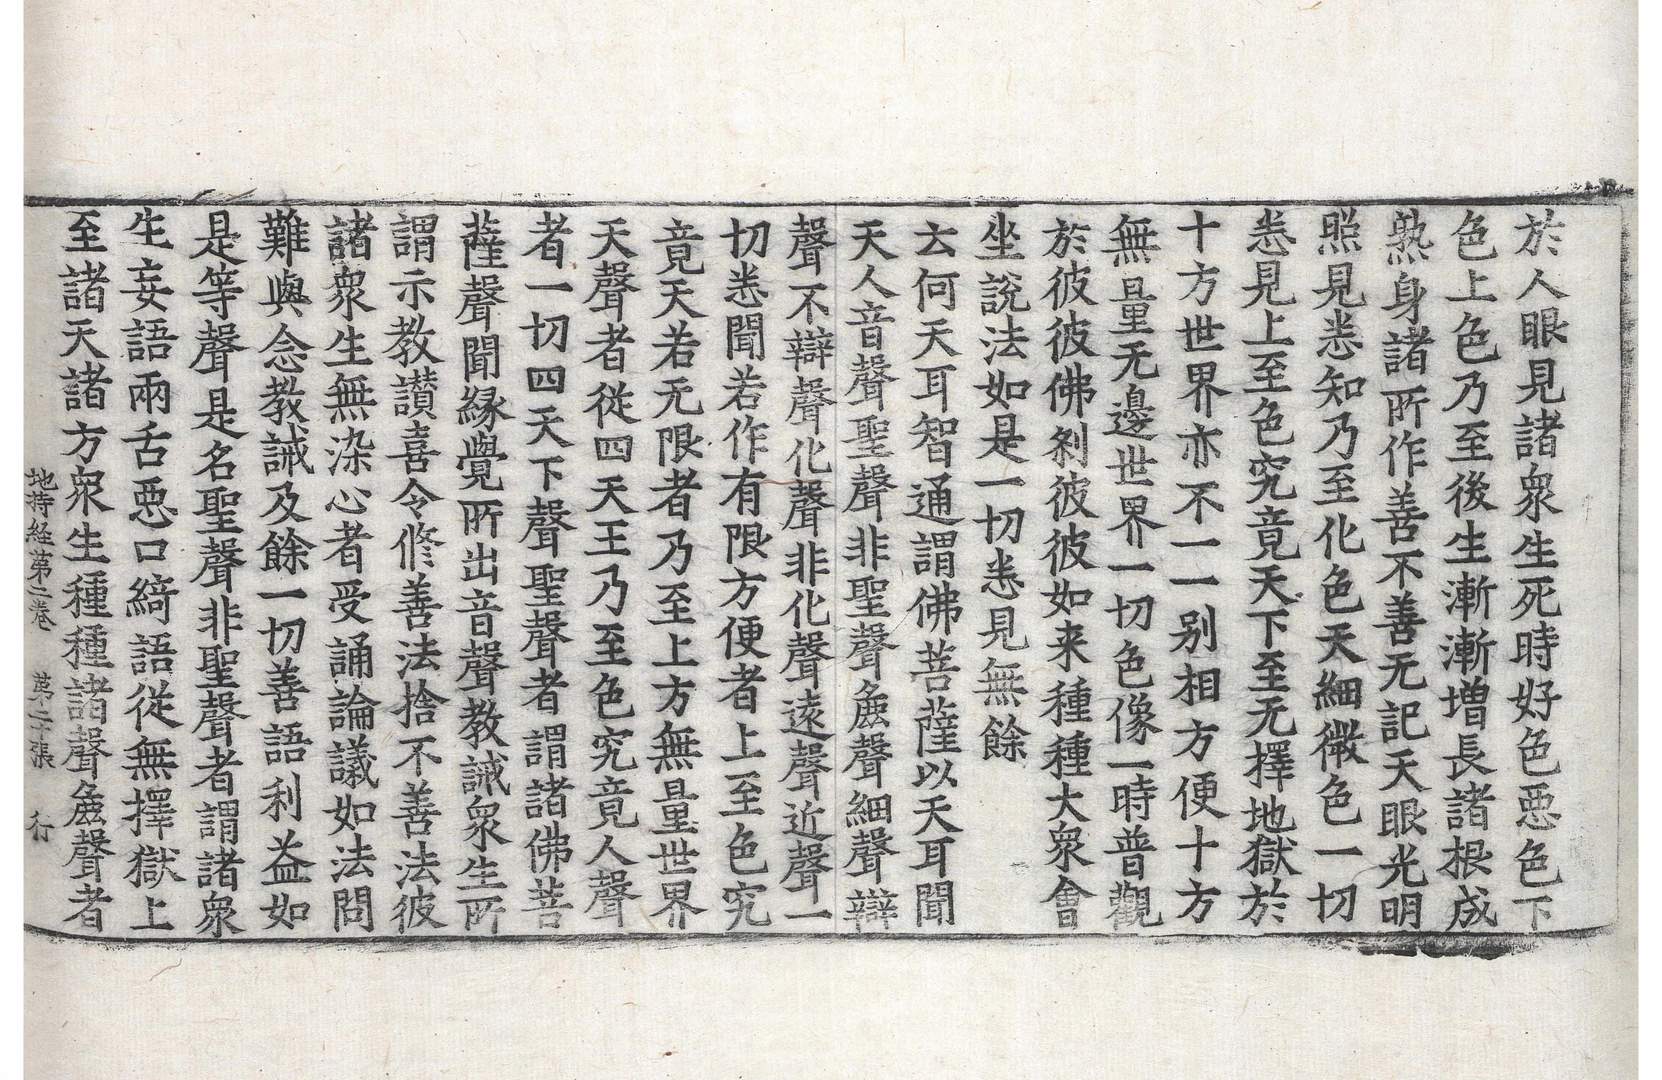 於人眼見諸衆生死時好色惡色下
色上色乃至後生漸漸增長諸根成
熟身諸所作善不善无記天眼光明
照見悉知乃至化色天細微色一切
悉見上至色究竟天下至无擇地獄於
十方世界亦不一一别相方便十方
無量无邊世界一切色像一時普觀
於彼彼佛刹彼彼如来種種大衆會
坐說法如是一切悉見無餘
云何天耳智通謂佛菩薩以天耳聞
天人音聲聖聲非聖聲麁聲細聲辯
聲不辯聲化聲非化聲遠聲近聲一
切悉聞若作有限方便者上至色究
竟天若无限者乃至上方無量世界
天聲者從四天王乃至色究竟人聲
者一切四天下聲聖聲者謂諸佛菩
薩聲聞緣覺所出音聲教誡衆生所
謂示教讃喜令修善法捨不善法彼
諸衆生無染心者受誦論議如法問
難與念教誡及餘一切善語利益如
是等聲是名聖聲非聖聲者謂諸衆
生妄語兩舌惡口綺語從無擇獄上
至諸天諸方衆生種種諸聲麁聲者
地持経第二卷 第二十張 行